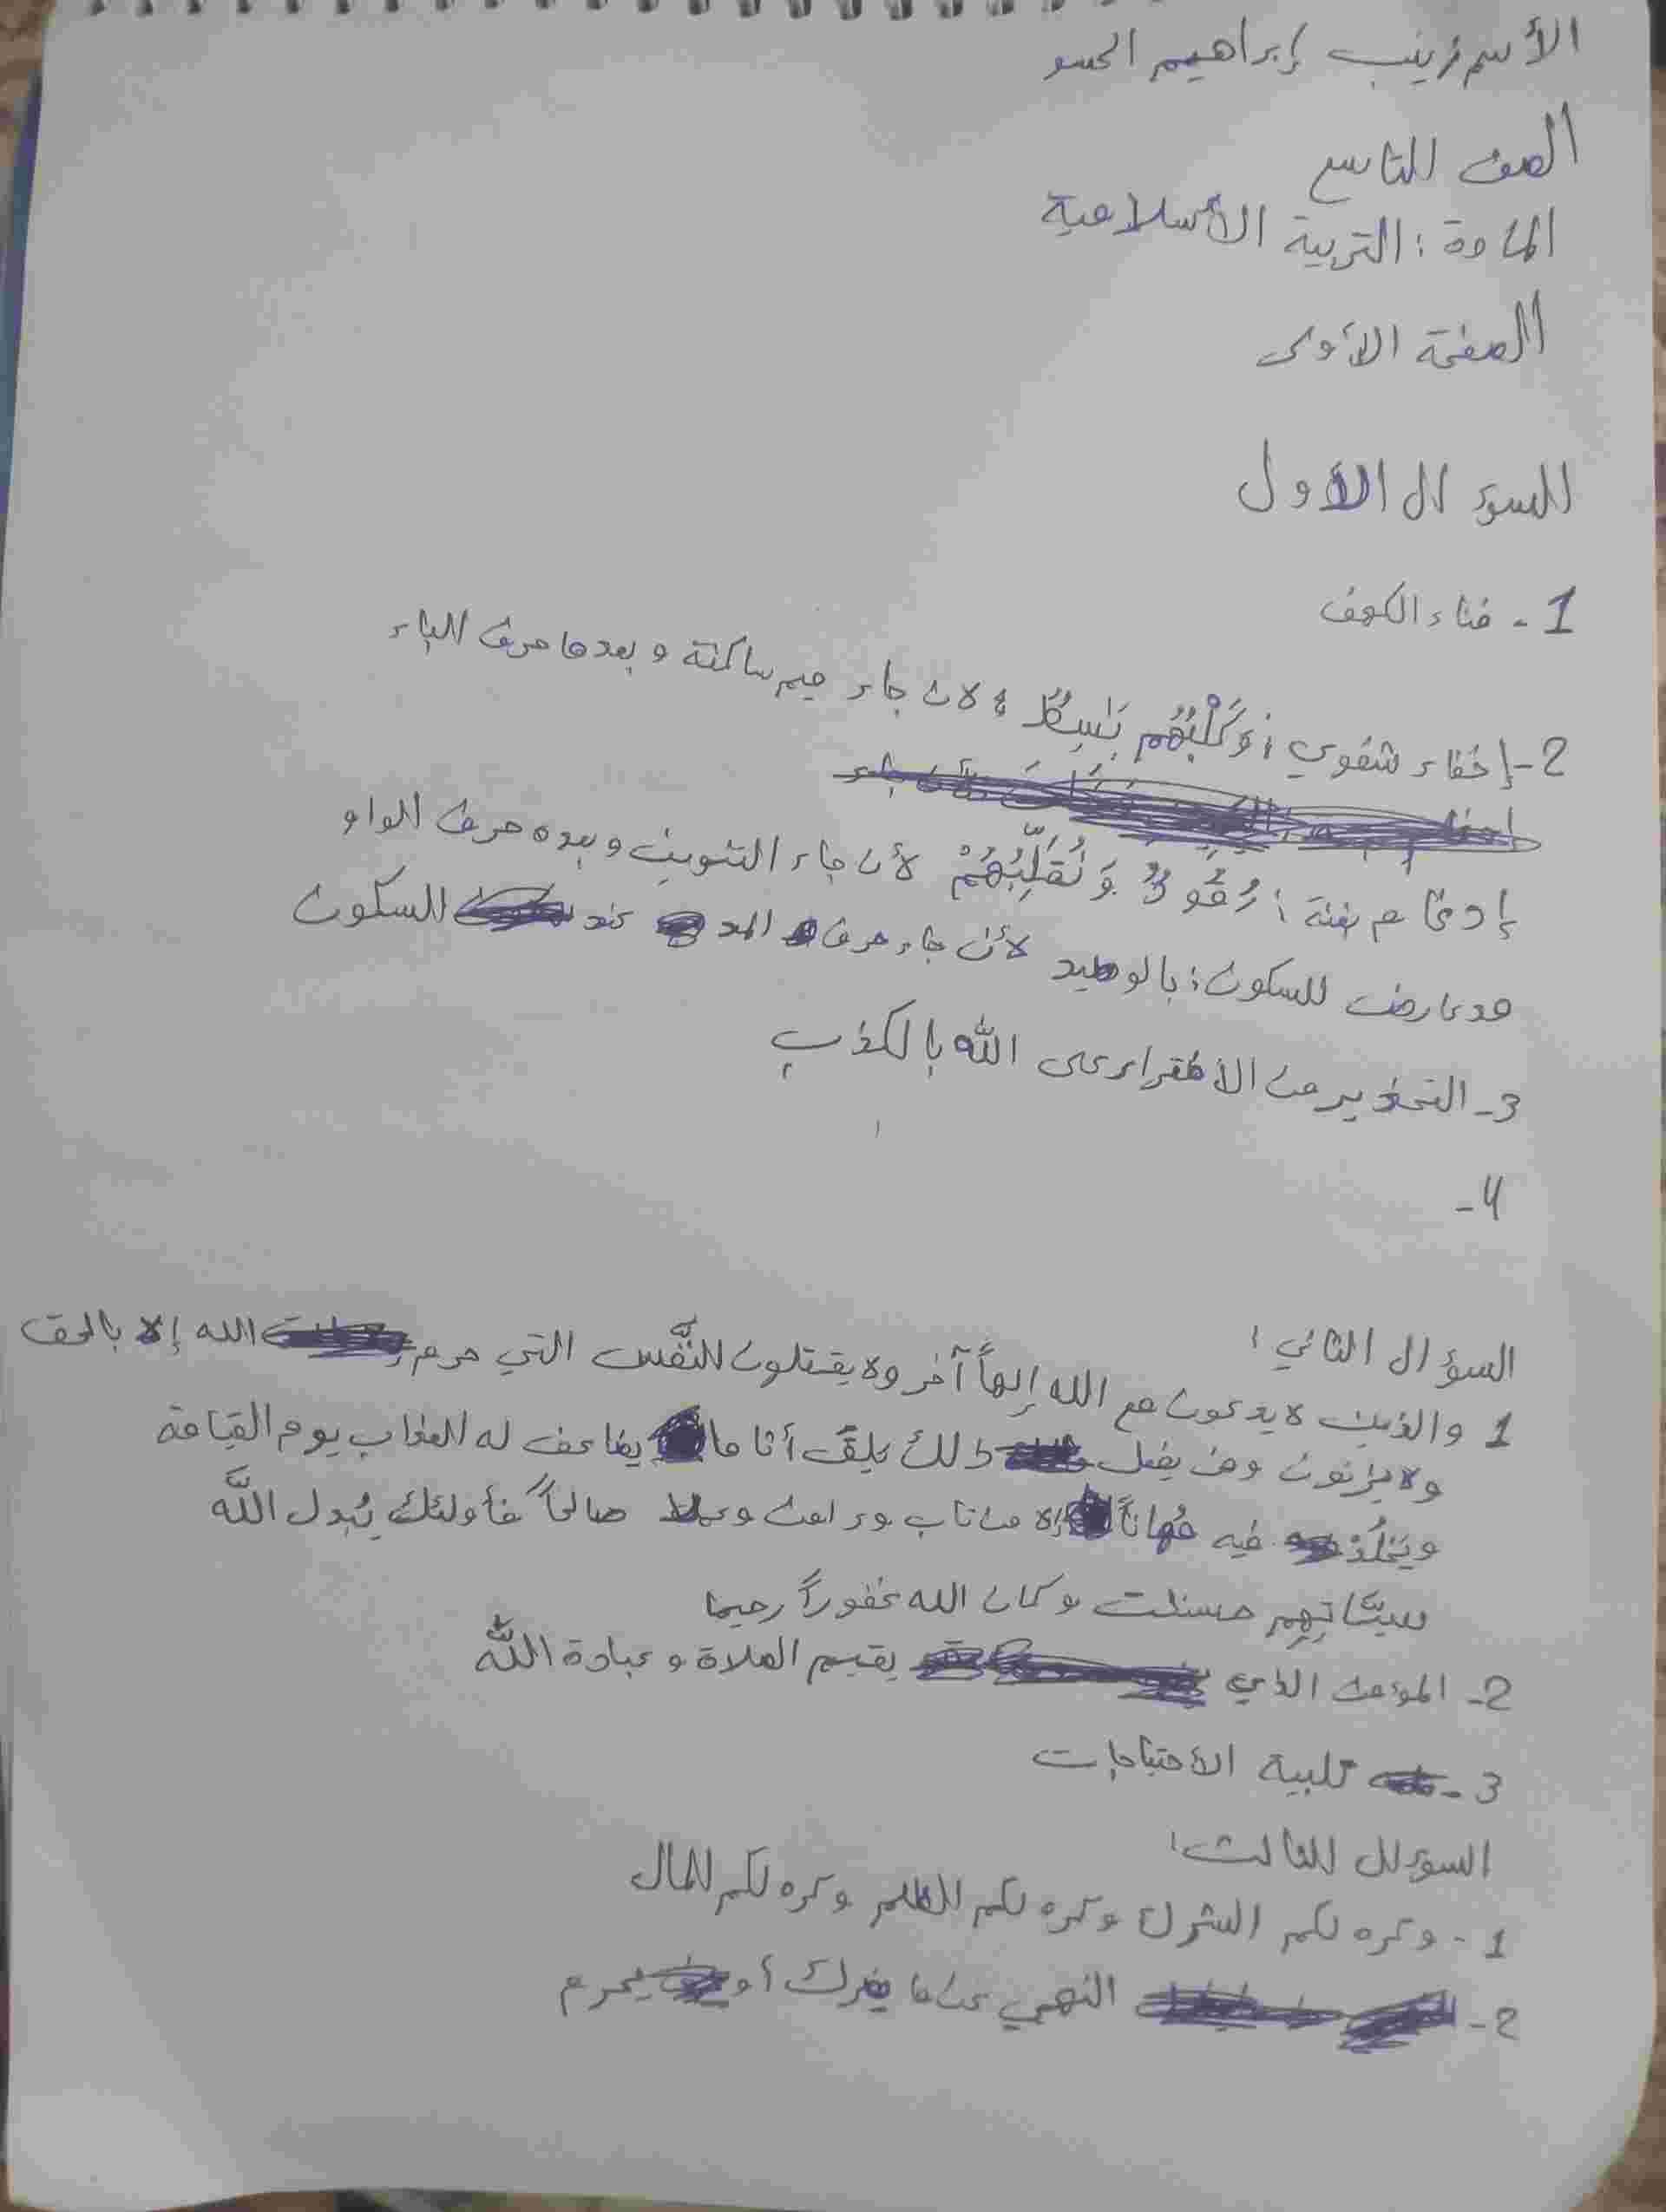 الأسم زينب إبراهيم الحسو
الصف التاسع
المادة : التربية الأسلامية
الصفحة الأولى
السؤال الأول
1 - فناء الكهف
2- إخفاء شفوي : وَكَلْبُهُم بَٰسِطٌ ؛ لان جاء ميم ساكنة و بعدها حرف الباء
إدغام بغنة : رُقُودٌ وَنُقَلِّبُهُمْ لأن جاء التنوين و بعده حرف الواو
مد عارض للسكون : بالوصيد لأن جاء حرف المد عند السكون
3- التحذير من الأفتراء على الله بالكذب
4-
السؤال الثاني :
1 والذين لا يدعون مع الله إلهاً آخر ولا يقتلون النَّفس التي حرم الله إلا بالحق
ولا يزنون ومن يفعل ذلك يلقَ أثاما يضاعف له العذاب يوم القيامة
ويَخلُد فيه مُهاناً إلا من تاب و امن وعملا صالحاً فأولئك يُبدل اللَّه
سيئاتِهِم حسنات وكان الله غفوراً رحيما
2- المؤمن الذي يقيم الصلاة و عبادة اللَّه
3- تلبية الأحتياجات
السؤال الثالث :
1 - وكره لكم الشرك وكره لكم الظلم وكره لكم المال
2- النهي عن ما يضرك أو يحرم